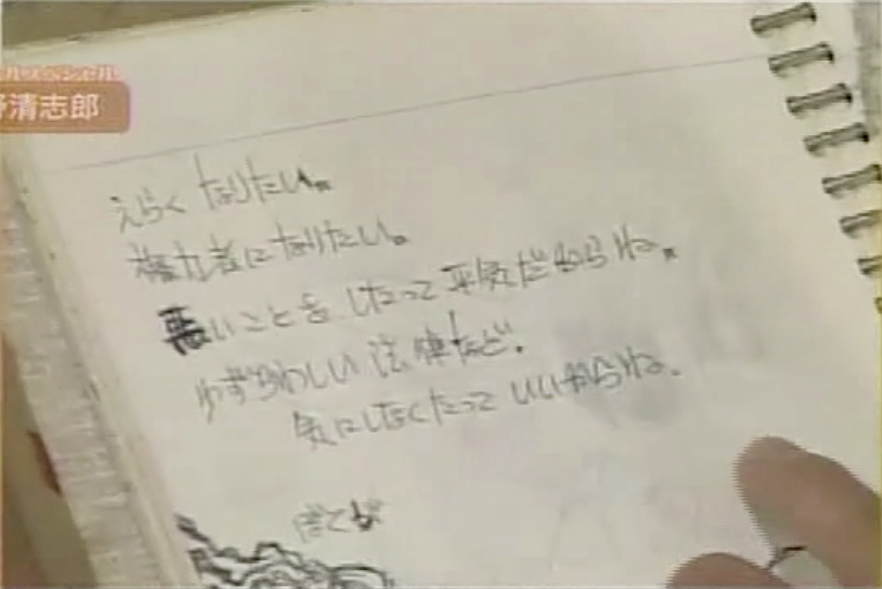 ルスペシャル
野清志郎
えらく なりたい。
権力者になりたい。
悪いことを したって 平気だからね。
わずらわしい 法律など。
気にしなくたって いいからね。